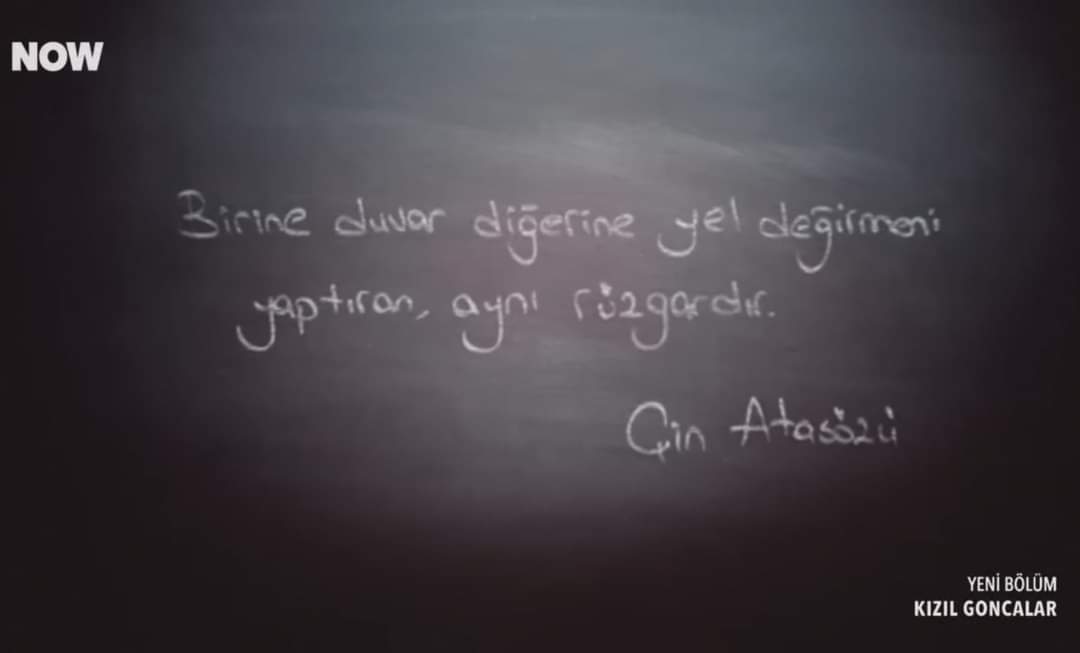 NOW
Birine duvar diğerine yel değirmeni
yaptıran, aynı rüzgardır.
Çin Atasözü
YENİ BÖLÜM
KIZIL GONCALAR